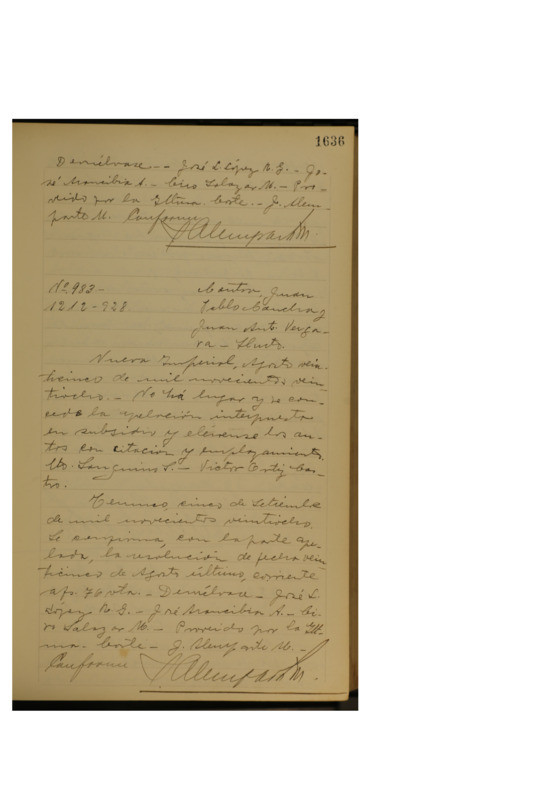 1636
Devuélvase. - José L. López R. G. - Jo-
sé Arancibia A. - Ciro Salazar M. - Pro-
veido por la Iltma. Corte. - J. Alem-
parte M. Conforme
JAlemparteM.
N2983-
1212-928.
Juan
Pablo
Juan Ant. Verga-
ra - Hurto.
Nueva Imperial, Agosto vein-
ticinco de mil novecientos vein-
tiocho. - No há lugar y se con-
cede la apelación interpuesta
en subsidio y elévense los au-
tos con citación y emplazamiento.
U. Sanguino S. - Victor Ortiz Cas-
tro.
Temuco, cinco de Setiembre
de mil novecientos veintiocho.
Se confirma, con la parte ape-
lada, la resolución de fecha vein-
ticinco de Agosto último, corriente
a fs. 76 vta. - Devuélvase - José L.
López R. G. - José Arancibia A. - Ci-
ro Salazar M. - Proveido por la Ilt-
ma. Corte - J. Alemparte M. -
Conforme JAlemparteM.